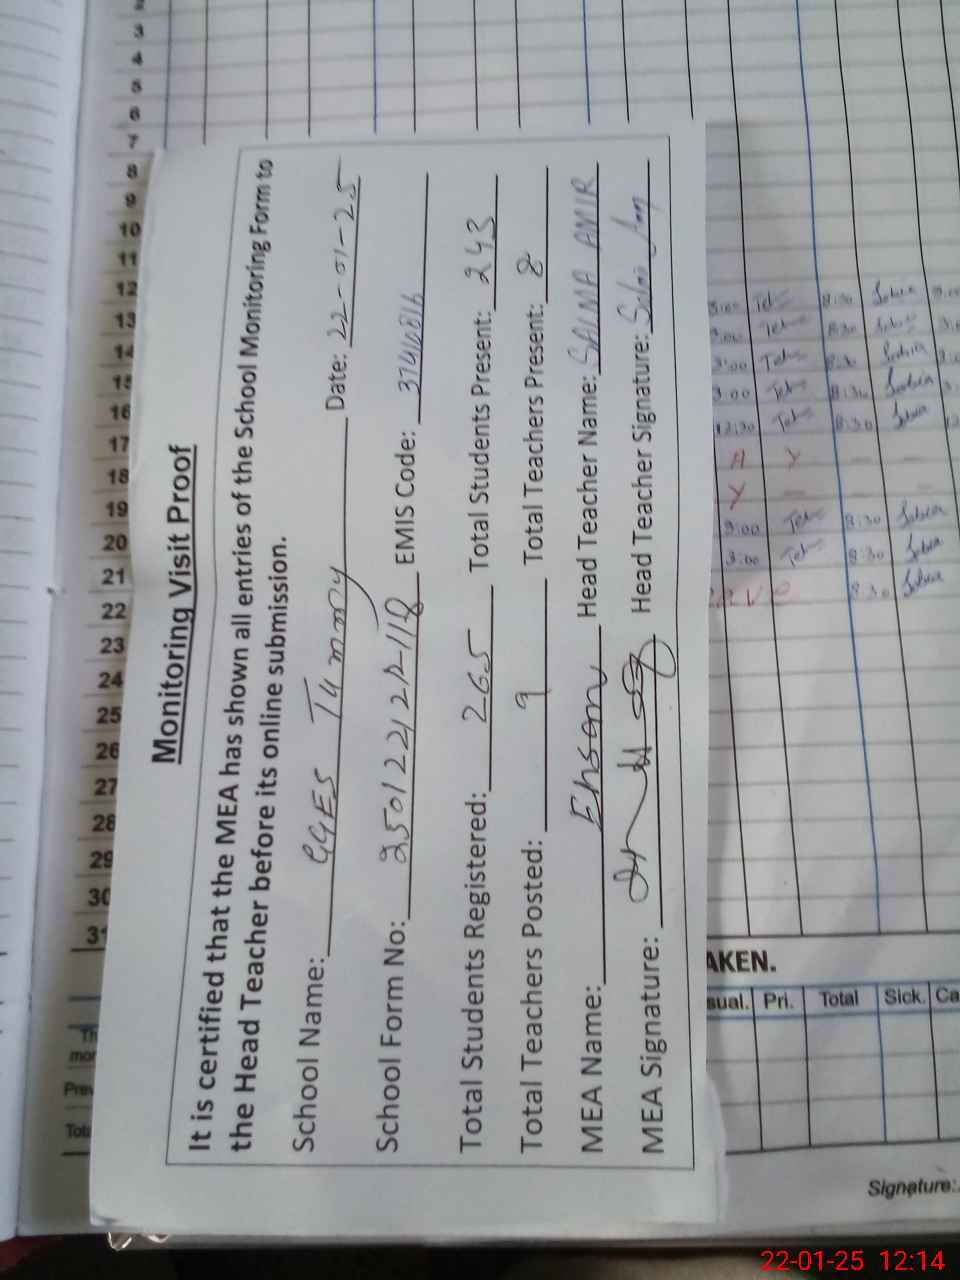 Monitoring Visit Proof
It is certified that the MEA has shown all entries of the School Monitoring Form to
the Head Teacher before its online submission.
School Name: GGES Tummny Date: 22-01-25
School Form No: 25012212R-118 EMIS Code: 37410816
Total Students Registered: 265 Total Students Present: 243
Total Teachers Posted: 9 Total Teachers Present: 8
MEA Name: Ehsan Head Teacher Name: SALMA AMIR
MEA Signature: Head Teacher Signature:
3
4
5
6
7
8
9
10
11
12
13
14
15
16
17
18
19
20
21
22
23
24
25
26
27
28
29
30
31
8:30 Sobia
8:30
Sobia
8:30 Sobia
12:30 8:30 Sobia
A Y
Y
3:00 8:30 Sobia
3:00 8:30 Sobia
8:30 Sobia
AKEN.
sual. Pri. Total Sick. Ca
Th
mor
Prev
Tota
Signature:
22-01-25 12:14